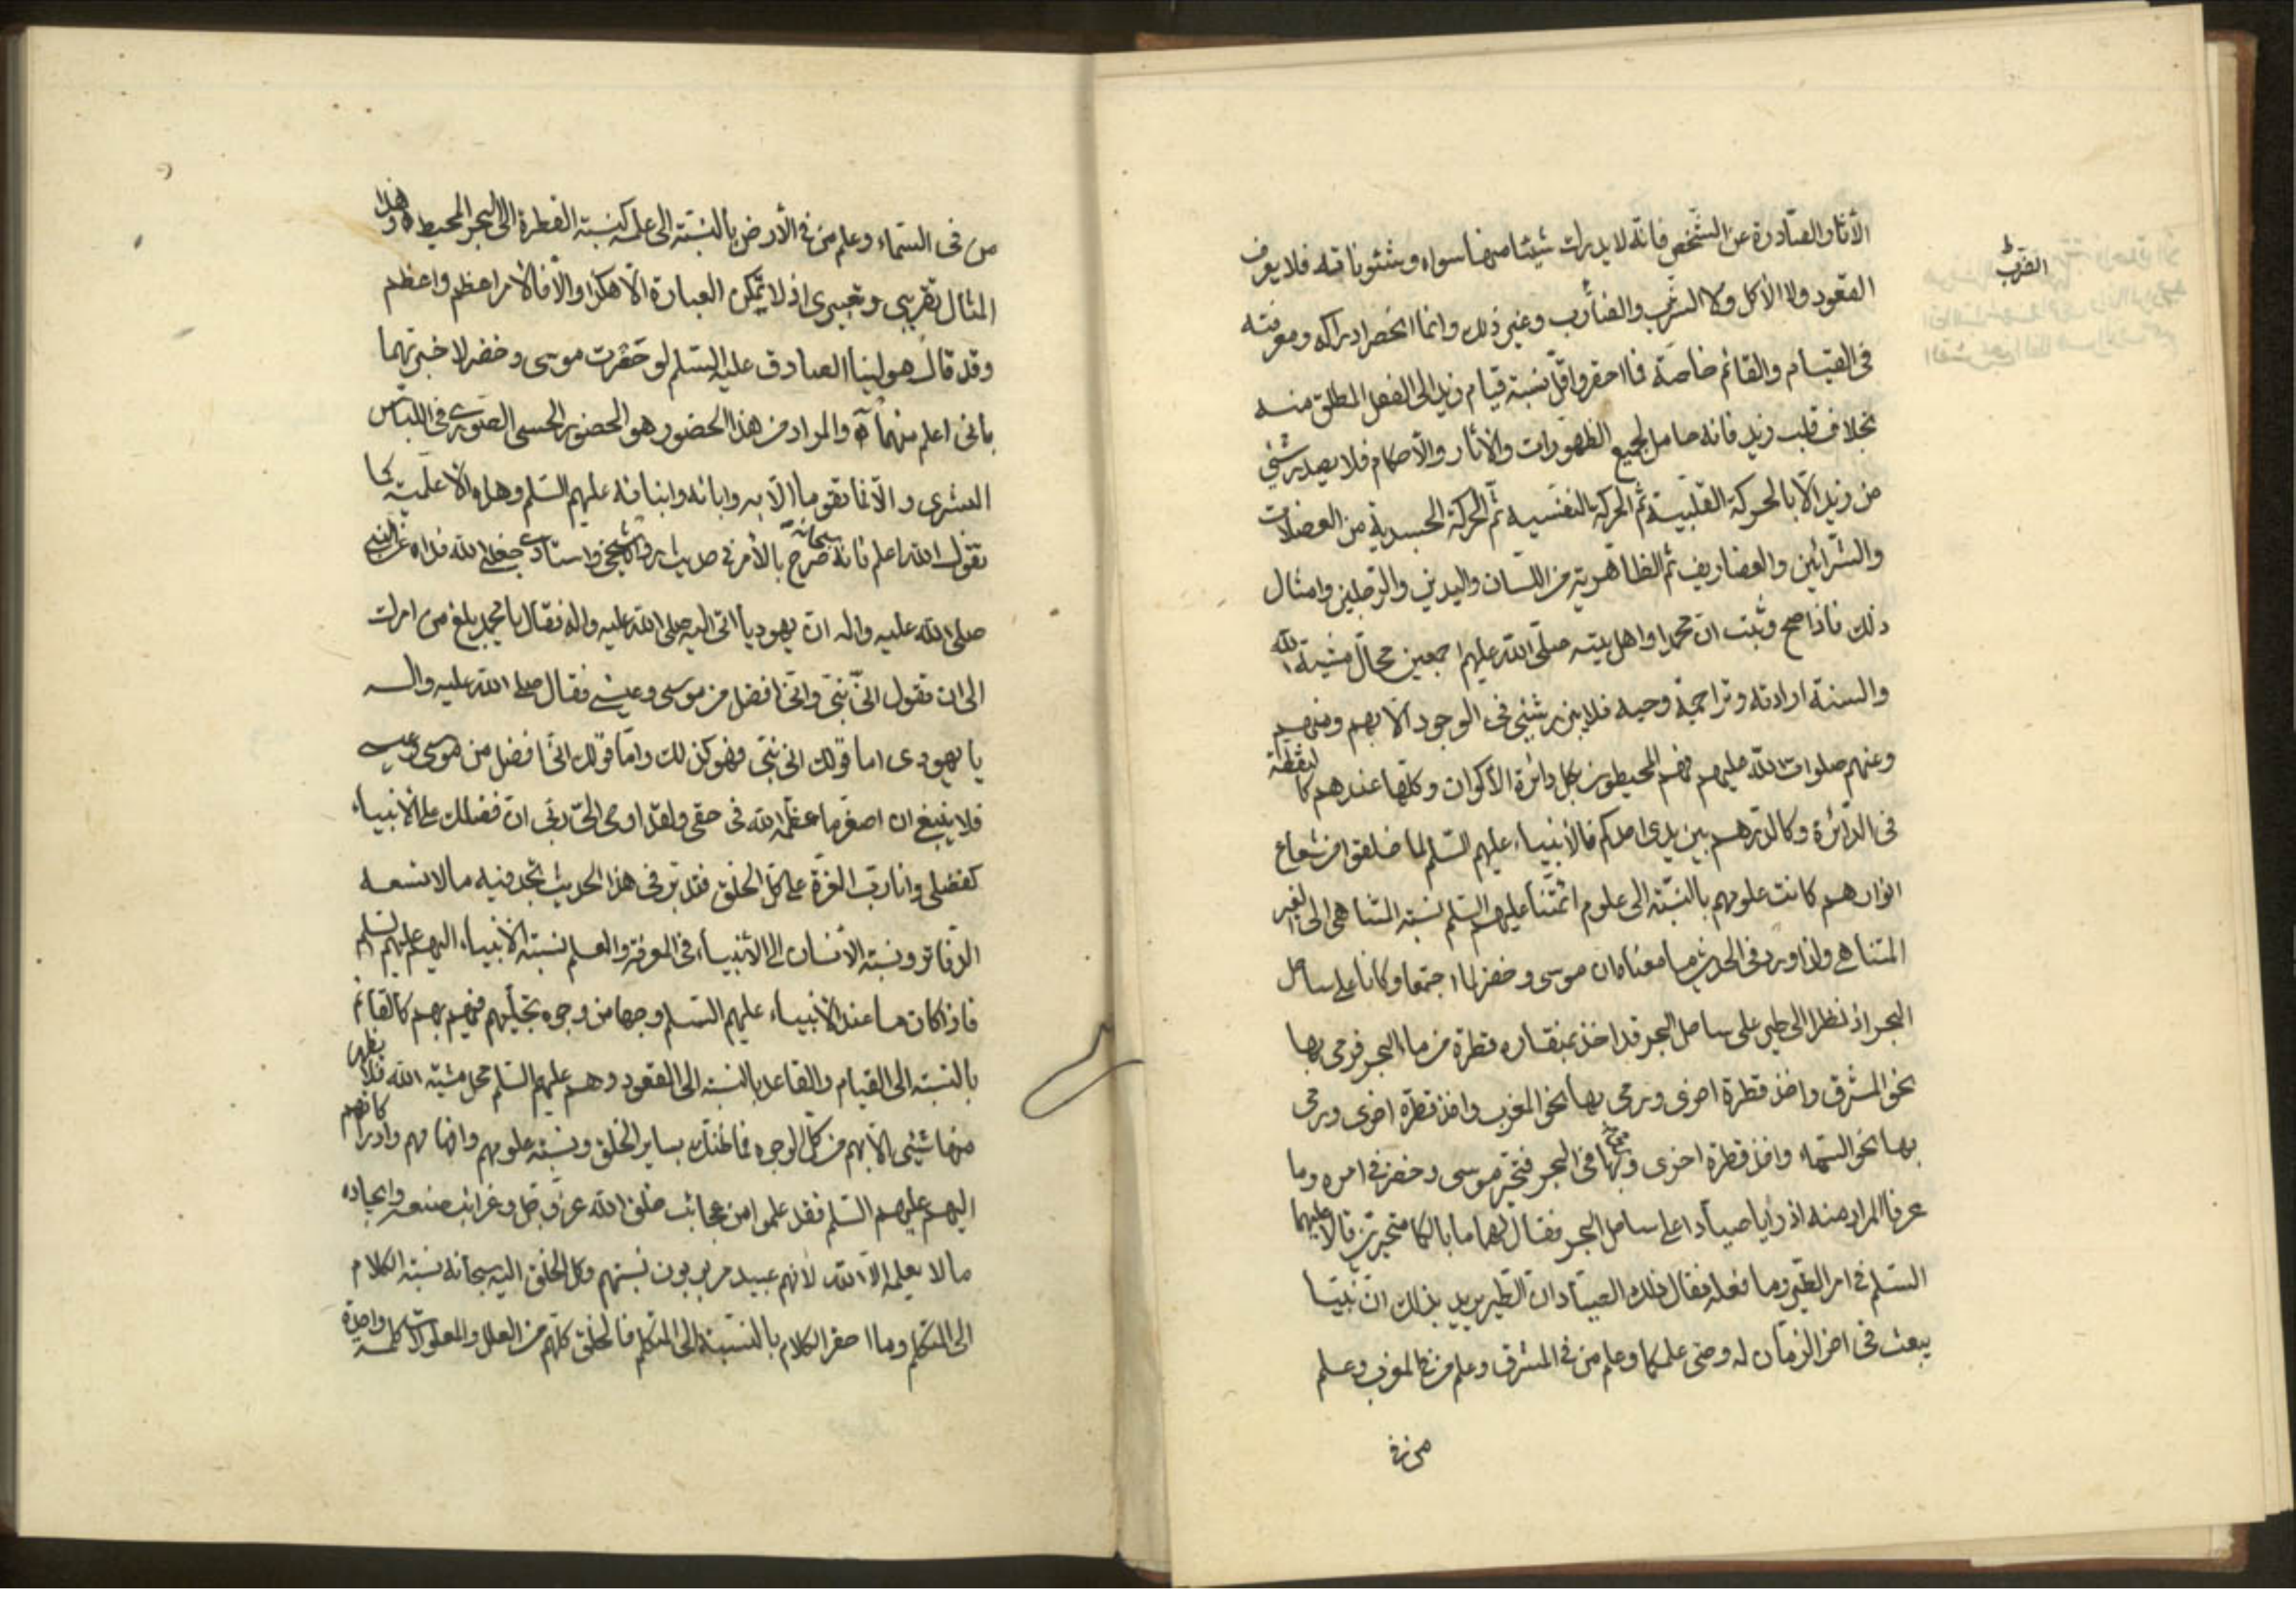 الآثار الصادرة عن الشخص فانه لا يدرك شيئا منها سواه وشئوناته فلا يعرف
القعود ولا الأكل ولا الشرب والضارب وغير ذلك وانما انحصر ادراكه ومعرفته
الضرب ط
فى القيام والقائم خاصة فما احقر واقل نسبة قيام زيد الى الفعل المطلق منه
بخلاف قلب زيد فانه حامل لجميع الظهورات والآثار والاحكام فلا يصدر شئى
من زيد الا بالحركة القلبية ثم الحركة النفسية ثم الحركة الجسدية من العضلات
والشرائين والغضاريف ثم الظاهرية من اللسان واليدين والرجلين وامثال
ذلك فاذا صح وثبت ان محمدا واهل بيته صلى الله عليهم اجمعين محال مشية الله
والسنة ارادته وتراجمة وحيه فلا يبرز شئى فى الوجود الا بهم ومنهم
وعنهم صلوات الله عليهم فهم المحيطون بكل دائرة الأكوان وكلها عندهم كالنقطة
فى الدائرة وكالدرهم بين يدى احدكم فالأنبياء عليهم السلم لما خلقوا من شعاع
انوارهم كانت علومهم بالنسبة الى علوم ائمتنا عليهم السلم نسبة المتناهى الى الغير
المتناهى ولذا ورد فى الحديث ما معناه ان موسى وخضر لما اجتمعا وكانا على ساحل
البحر اذ نظرا الى طير على ساحل البحر قد اخذ بمنقاره قطرة من ماء البحر فرمى بها
نحو المشرق واخذ قطرة اخرى ورمى بها نحو المغرب واخذ قطرة اخرى ورمى
بها نحو السماء واخذ قطرة اخرى ورمى بها فى البحر فتحير موسى وخضر فى امره وما
عرفا المراد منه اذ رأيا صيادا على ساحل البحر فقال لهما ما بالكما متحيرين قالا عليهما
السلم فى امر الطير وما فعله فقال ذلك الصياد ان الطير يريد بذلك ان نبيا
يبعث فى اخر الزمان له وصى علمكما وعلم من فى المشرق وعلم من فى المغرب وعلم
من فى
من فى السماء وعلم من فى الأرض بالنسبة الى علمه كنسبة القطرة الى البحر المحيط وهذا
المثال تقريبى وتعبيرى اذ لا يمكن العبارة الا هكذا والا فالأمر اعظم واعظم
وقد قال مولينا الصادق عليه السلم لو حضرت موسى وخضر لاخبرتهما
بأنى اعلم منهما ه والمراد من هذا الحضور هو الحضور الحسى الصورى فى اللباس
البشرى والا فما تقوما الا به وابائه وابنائه عليهم السلم وهذه الاعلمية كما
تقول الله اعلم فانه سبحانه صرح بالأمر فى حديث رواه شيخى واستادى جعلنى الله فداه عن النبى
صلى الله عليه واله ان يهوديا اتى اليه صلى الله عليه واله فقال يا محمد بلغ من امرك
الى ان تقول انى نبى وانى افضل من موسى وعيسى فقال صلى الله عليه واله
يا يهودى اما قولك انى نبى فهو كذلك واما قولك انى افضل من موسى وعيسى
فلا ينبغى ان اصغر ما عظمه الله فى حقى ولقد اوحى الى ربى ان فضلك على الأنبياء
كفضلى وانا رب العزة على كل الخلق فتدبر فى هذا الحديث تجد فيه ما لا تسعه
الدفاتر ونسبة الانسان الى الأنبياء فى المعرفة والعلم نسبة الانبياء اليهم عليهم السلم
فاذا كان ما عند الأنبياء عليهم السلم وجها من وجوه تجليهم فهم بهم كالقائم
بالنسبة الى القيام والقاعد بالنسبة الى القعود وهم عليهم السلم محل مشية الله فلا يظهر
منها شئى الا بهم من كل الوجوه فما ظنك بساير الخلق ونسبة علومهم وافهامهم وادراكاتهم
اليهم عليهم السلم فقد علموا من عجائب خلق الله عز وجل وغرائب صنعه وايجاده
ما لا يعلمه الا الله لأنهم عبيد مربوبون نسبتهم وكل الخلق اليه سبحانه نسبة الكلام
الى المتكلم وما احقر الكلام بالنسبة الى المتكلم فالخلق كلهم من العلل والمعلولات كلمة واحدة